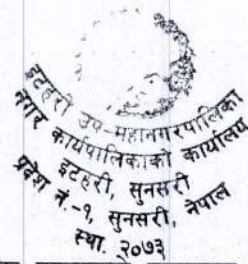 इटहरी उप-महानगरपालिका
नगर कार्यपालिकाको कार्यालय
इटहरी, सुनसरी
प्रदेश नं.-१, सुनसरी, नेपाल
स्था. २०७३